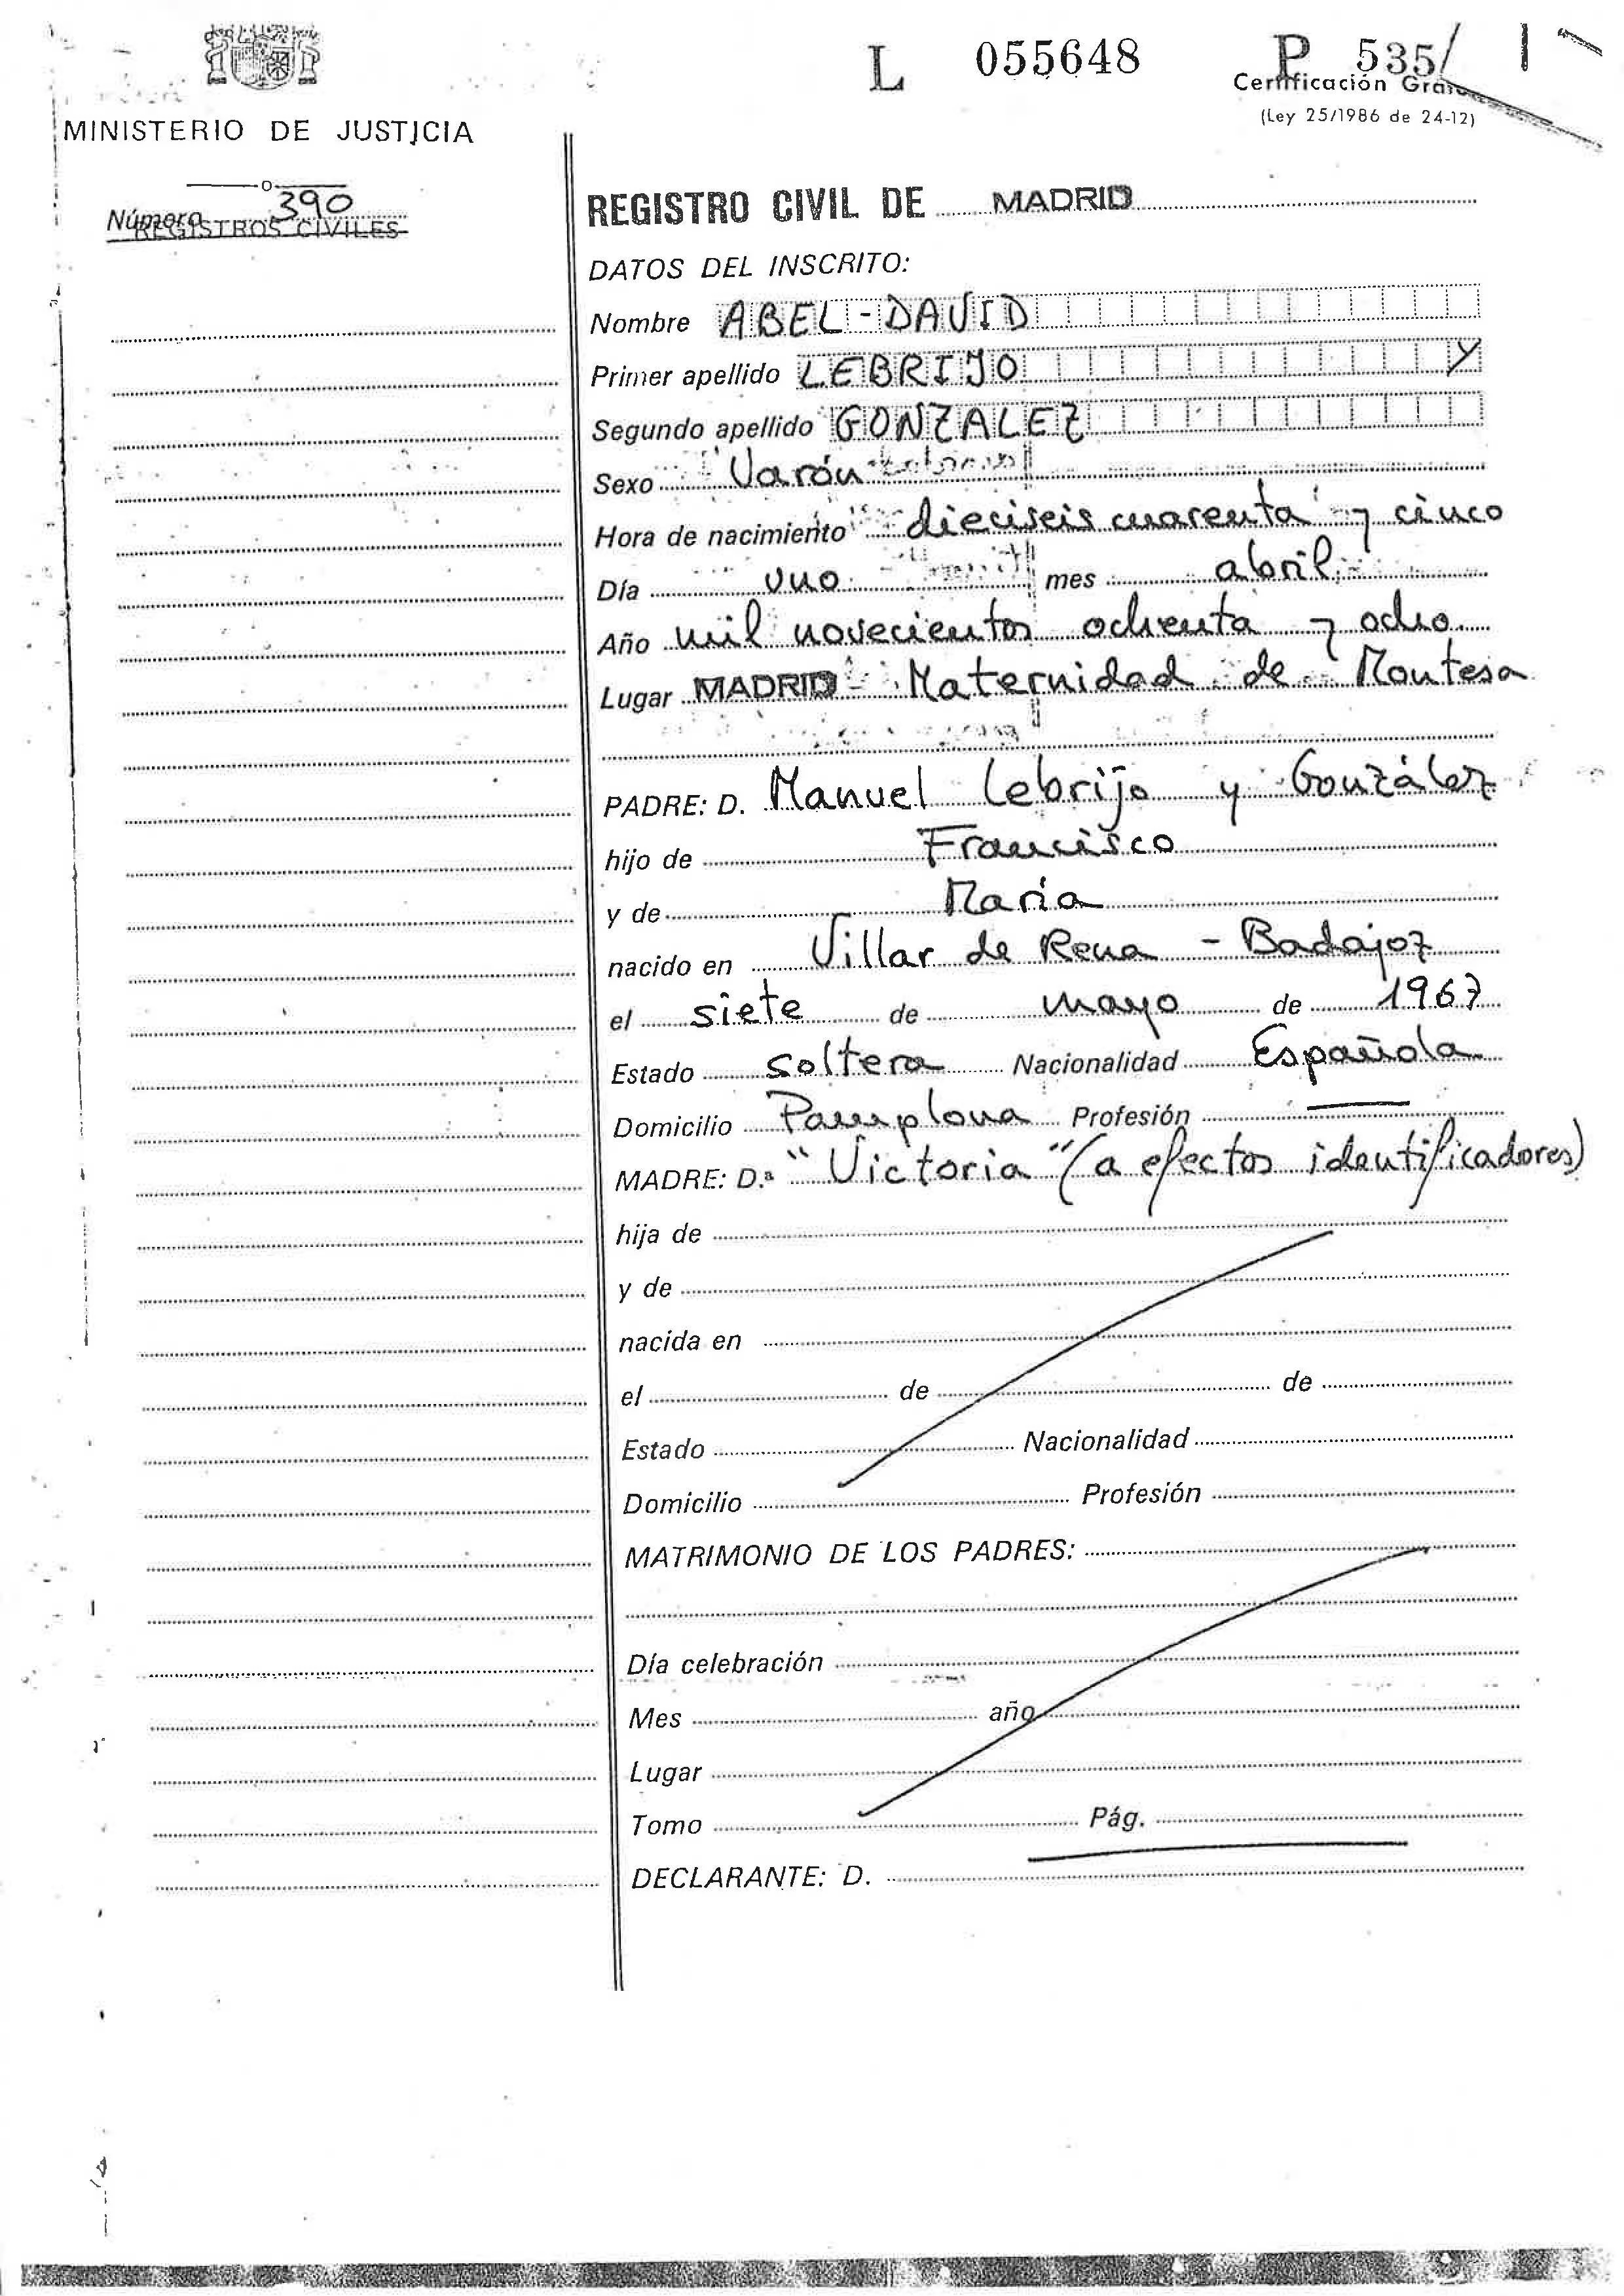 L 055648 P 535/
Certificación
(Ley 25/1986 de 24-12)
MINISTERIO DE JUSTICIA
Número 390
REGISTROS CIVILES
REGISTRO CIVIL DE MADRID
DATOS DEL INSCRITO:
Nombre ABEL-DAVID
Primer apellido LEBRIJO Y
Segundo apellido GONZALEZ
Sexo Varón
Hora de nacimiento dieciseis cuarenta y cinco
Día uno mes abril
Año mil novecientos ochenta y ocho
Lugar MADRID - Maternidad de Montesa
PADRE: D. Manuel Lebrijo y González
hijo de Francisco
y de María
nacido en Villar de Rena - Badajoz
el siete de mayo de 1967
Estado soltero Nacionalidad Española
Domicilio Pamplona Profesión —
MADRE: D.ª "Victoria" (a efectos identificadores)
hija de
y de
nacida en
el de de
Estado Nacionalidad
Domicilio Profesión
MATRIMONIO DE LOS PADRES:
Día celebración
Mes año
Lugar
Tomo Pág.
DECLARANTE: D.